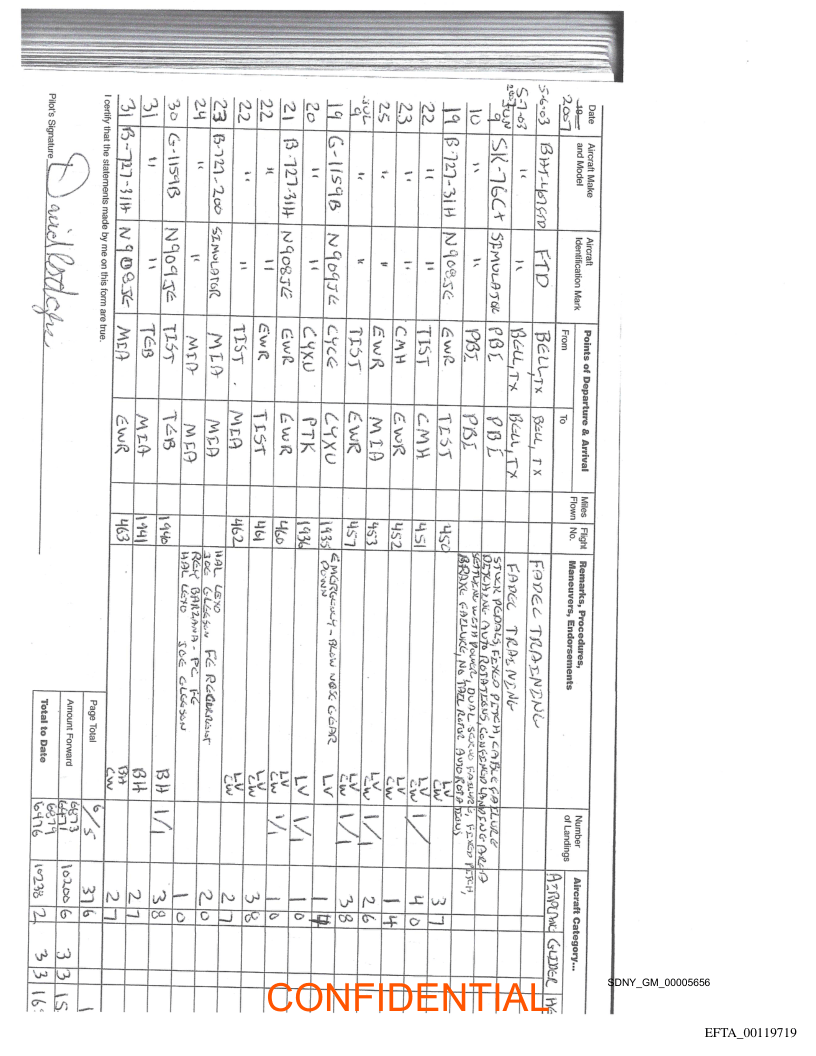 Date 19 2007 Aircraft Make and Model Aircraft Identification Mark Points of Departure & Arrival From To Miles Flown Flight No. Remarks, Procedures, Maneuvers, Endorsements Number of Landings Aircraft Category... AIRPLANE GLIDER
5-6-03 BHT-407 FTD FTD BELL, TX BELL, TX FADEC TRAINING
5-7-03 " " BELL, TX BELL, TX FADEC TRAINING
2007 JUN 9 SK-76C+ SIMULATOR PBI PBI STUCK PEDALS, FIXED PITCH, CABLE FAILURE
10 " " PBI PBI
19 B-727-31H N908JE EWR TIST 450 LV CW 3 7
22 " " TIST CMH 451 LV CW 1/ 4 0
23 " " CMH EWR 452 LV CW 1 4
25 " " EWR MIA 453 LV CW 1/1 2 6
JUL 9 " " TIST EWR 457 LV CW 1/1 3 8
19 G-1159B N909JE CYCE CYXU 1935 EMERGENCY - BLOW NOSE GEAR DOWN LV 1 4
20 " " CYXU PTK 1936 LV 1/1 1 0
21 B-727-31H N908JE EWR EWR 460 LV CW 1/1 1 0
22 " " EWR TIST 461 LV CW 3 8
22 " " TIST MIA 462 LV CW 2 7
23 B-727-200 SIMULATOR MIA MIA HAL LEYO JOE GLEESON FE 2 0
24 " " MIA MIA HAL LEYO JOE GLEESON 1 0
30 G-1159B N909JE TIST TEB 1940 BH 1/1 3 8
31 " " TEB MIA 1941 BH 2 7
31 B-727-31H N908JE MIA EWR 463 BH CW 2 7
I certify that the statements made by me on this form are true.
Page Total 6/5 37 6
Amount Forward 6873 6471 10200 6 3 3
Pilot's Signature
Total to Date 6879 6476 10238 2 3 3
CONFIDENTIAL
SDNY_GM_00005656
EFTA_00119719